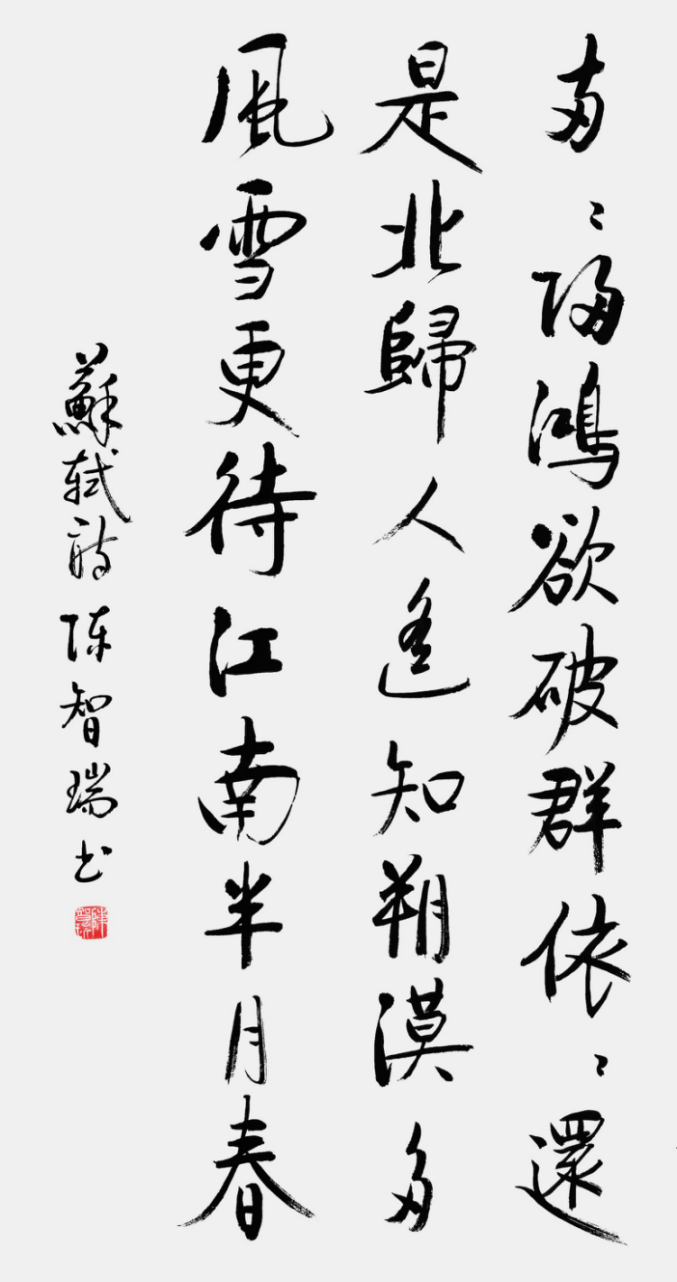 兩々歸鴻欲破群依々還
是北歸人遙知朔漠多
風雪更待江南半月春
蘇軾詩陳智瑞書